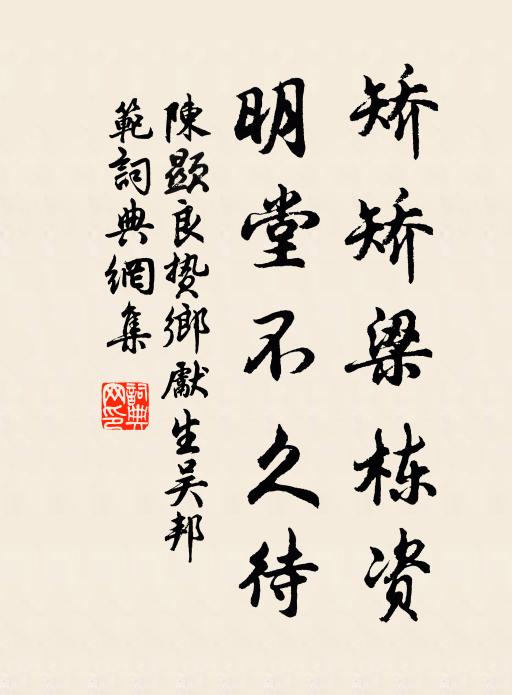 矫矫梁栋资
明堂不久待
陳顯良贽鄉獻生吴邦
範詞典網集
詞典
网印